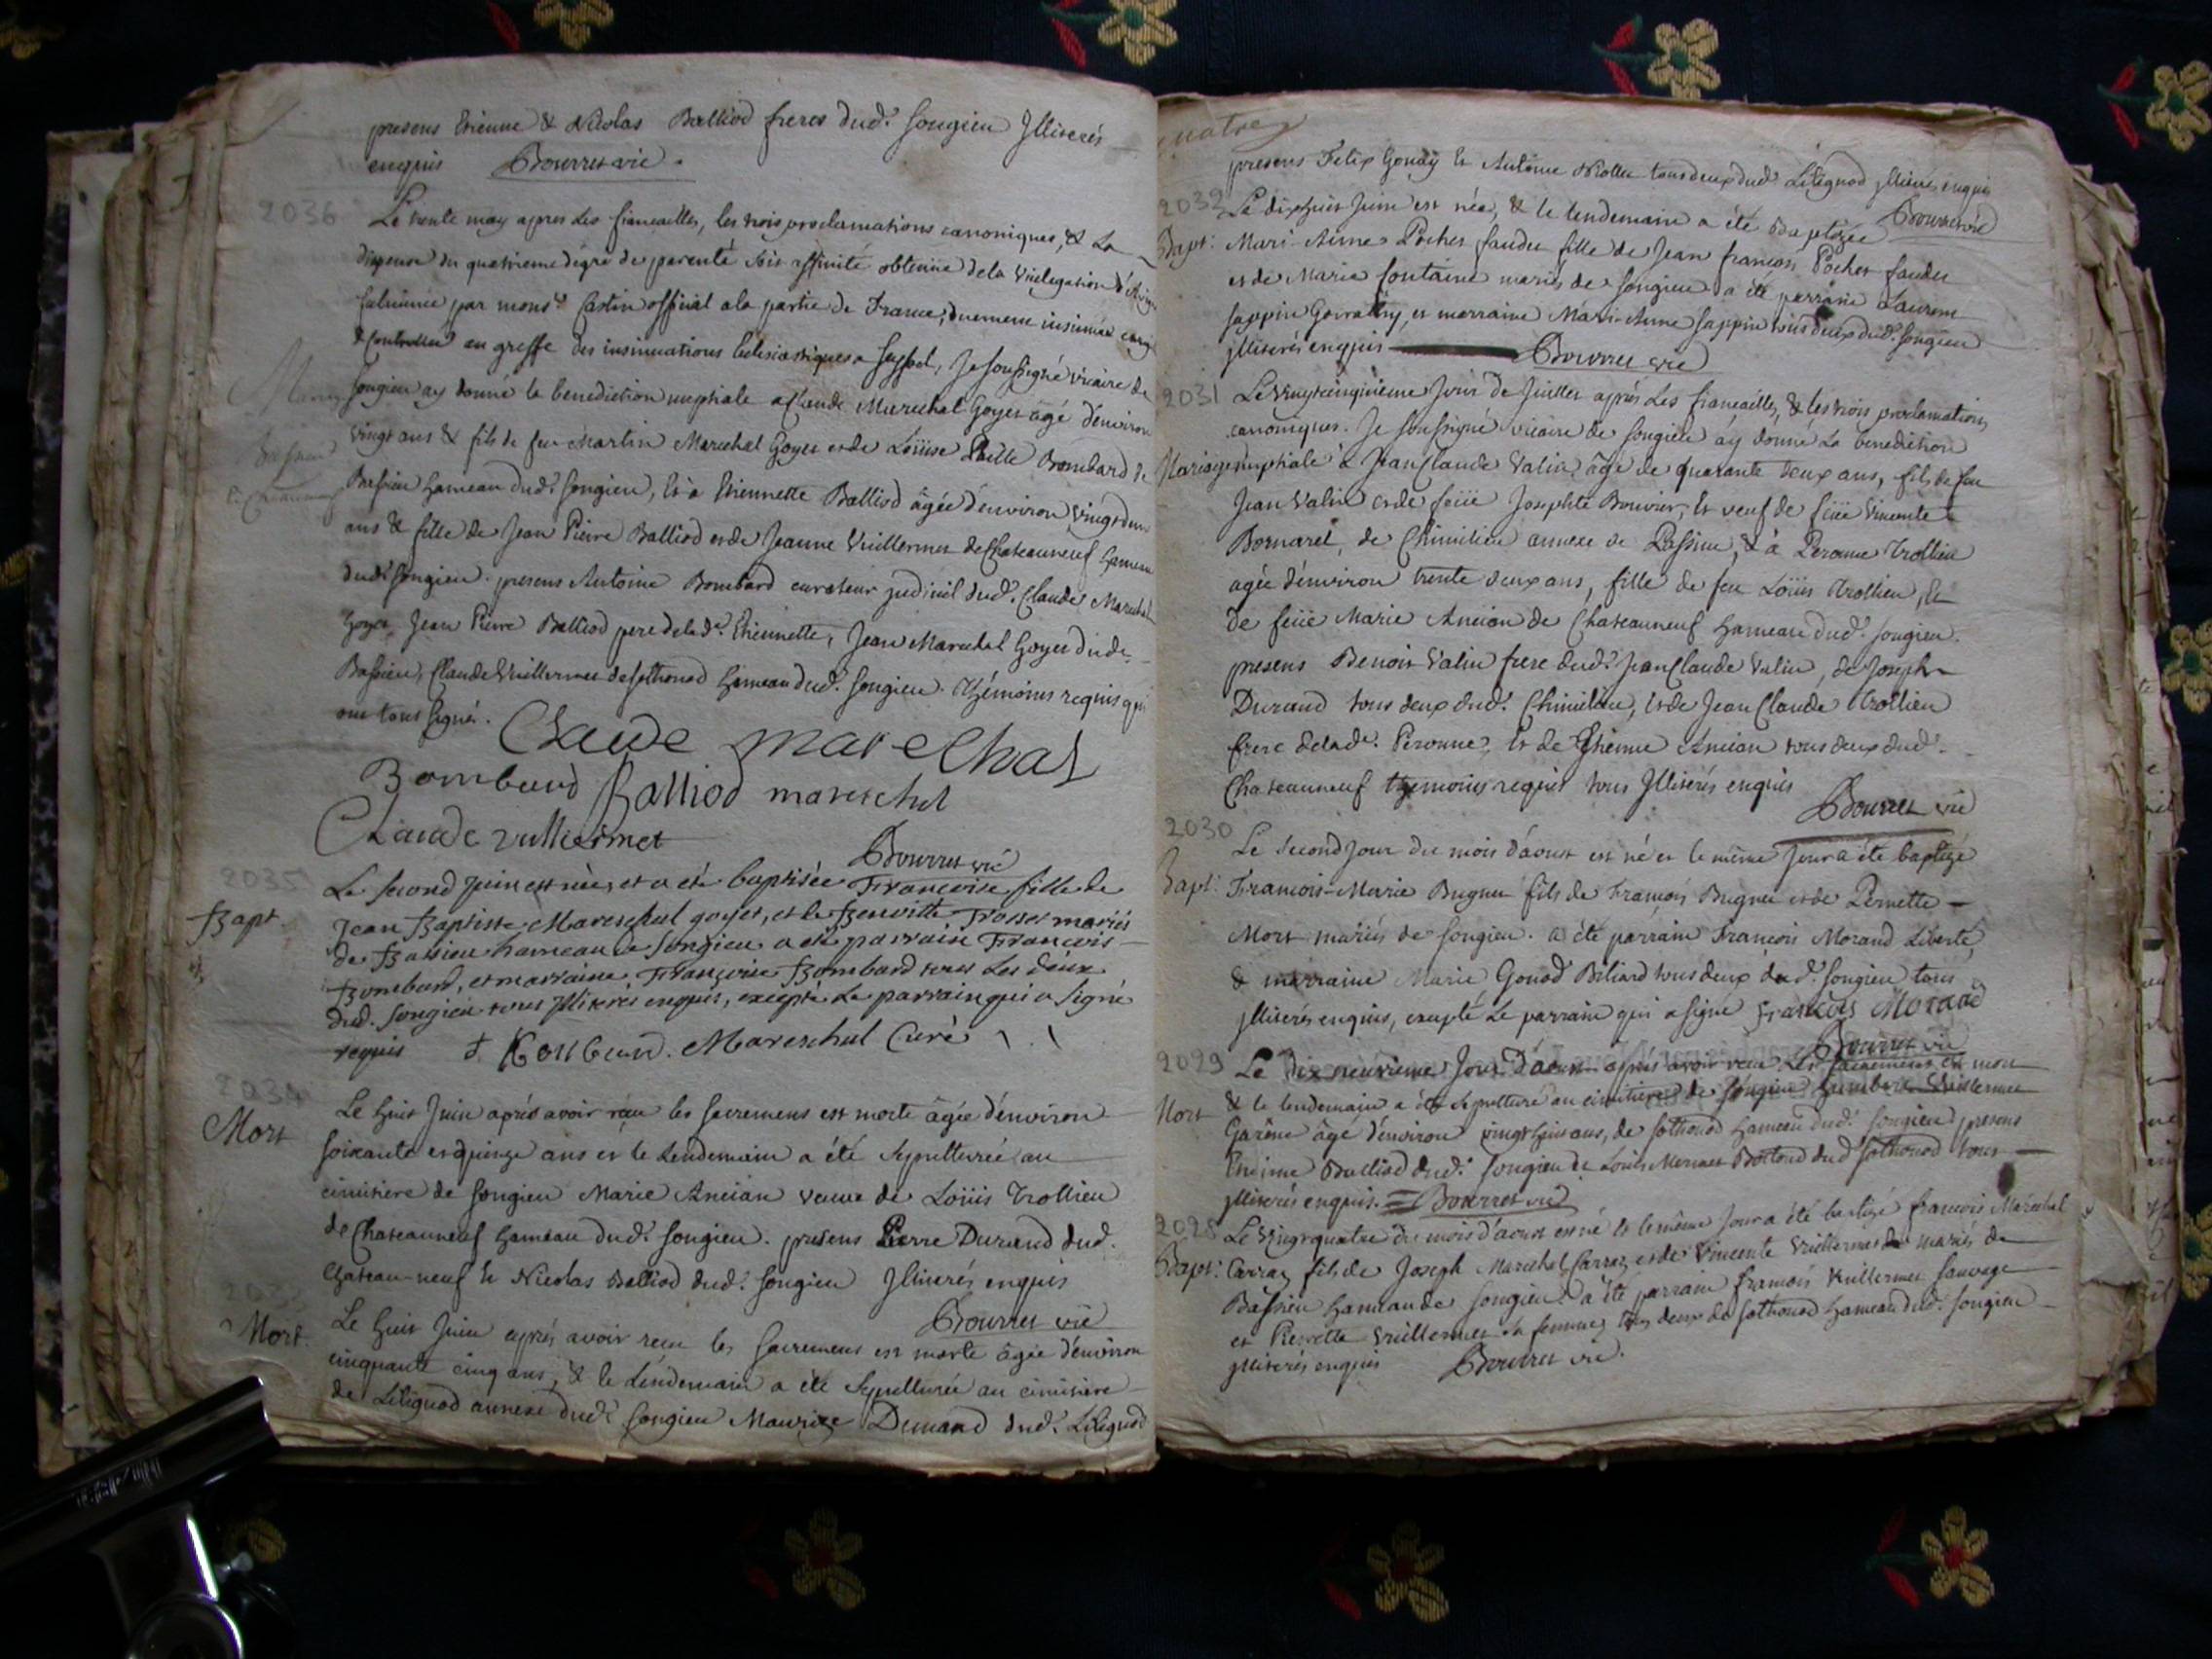 presens Etienne & Nicolas Balliod freres dud.t songieu Illiterés
enquis Bourret vic.
2036
Le trente may apres les fiancailles, les trois proclamations canoniques, & La
dispense du quatrieme dégré de parenté obtenüe de la Vicelegation
par mons.r official a la partie de France, duement insinuée
& Controllée au greffe des insinuations Eclesiastiques a Seyssel, Je soussigné vicaire de
songieu ay donné la benediction nuptiale a Claude Marechal Goyet âgé d'environ
vingt ans & fils de feu Martin Marechal Goyet et de Loüise Bombard de
Bassieu hameau dud.t songieu, Et a Etiennette Balliod âgée d'environ vingt
ans & fille de Jean Pierre Balliod et de Jeanne Vuillermet de Chateauneuf hameau
dud.t songieu. presens Antoine Bombard curateur dud.t Claude Marechal
Goyet, Jean Pierre Balliod pere de lad.e Etiennette, Jean Marechal Goyet dud.
Bassieu, Claude Vuillermet de sothonod hameau dud.t songieu. thémoins requis qui
ont tous signé. Claude marechal
Bombard Balliod mareschal
Claude vulliermet
Bourret vic
2035
Bapt.
Le second juin est née, et a eté baptisée Francoise fille de
Jean Baptiste Mareschal goyet, et de Benoitte mariés
de Bassieu hameau de songieu a eté parrain Francois
Bombard, et marraine Françoise Bombard tous les deux
dud. songieu tous illiterés enquis, excepté Le parrain qui a signé
requis f. Bombard. Mareschal Curé
2034
Mort
Le huit Juin aprés avoir reçu les sacremens est morte âgée d'environ
soixante et quinze ans et le Lendemain a été sepulturée au
cimitiere de songieu Marie Ancian veuve de Loüis Trollieu
de Chateauneuf hameau dud.t songieu. presens Pierre Durand dud.t
Chateau-neuf Et Nicolas Balliod dud.t songieu Illiterés enquis
Bourret vic
2033
Mort.
Le huit Juin aprés avoir reçu les sacremens est morte âgée d'environ
cinquante cinq ans, & le Lendemain a été sepulturée au cimitiere
de Lilignod annexe dud.t songieu Maurize Durand dud.t Lilignod
presens Felix Gonay Et Antoine tous deux dud.t Lilignod Illiterés enquis
Bourret vic
2032
Bapt.
Le dixhuit Juin est née, & le lendemain a été Baptizée
Mari-Anne Pochet faudet fille de Jean francois Pochet faudet
et de Marie fontaine mariés de songieu a été parrain Laurent
sappin et marraine Mari-Anne sappin tous deux dud.t songieu
Illiterés enquis Bourret vic
2031
Mariage
Le vingtcinquieme Jour de Juillet aprés les fiancailles, & les trois proclamations
canoniques. Je soussigné vicaire de songieu ay donné La benediction
nuptiale a Jean Claude Valin âgé de quarante deux ans, fils de feu
Jean Valin et de feüe Josephte Bouvier, Et veuf de feüe Vincente
Bornarel, de Chimilieu annexe de Passin, & à Peronne Trollieu
agée d'environ trente deux ans, fille de feu Loüis Trollieu, Et
de feüe Marie Ancian de Chateauneuf hameau dud.t songieu.
presens Benoit Valin frere dud.t Jean Claude Valin, de Joseph
Durand tous deux dud.t Chimilieu, Et de Jean Claude Trollieu
frere de lad.e Peronne, Et de Etienne Ancian tous deux dud.t
Chateauneuf thémoins requis tous Illiterés enquis
Bourret vic
2030
Bapt.
Le second Jour du mois d'aoust est né et le même Jour a été baptizé
Francois-Marie Bugnet fils de Francois Bugnet et de Pernette
Mort mariés de songieu. a été parrain Francois Morand Liberté,
& marraine Marie Gonod Biliard tous deux dud.t songieu tous
Illiterés enquis, excepté Le parrain qui a signé François Morand
Bourret vic
2029
Mort
Le dix neuvieme Jour D'aoust aprés avoir reçu Les sacremens est mort
& le lendemain a été sepulturé au cimitiere de songieu Humbert Vuillermet
âgé d'environ vingt huit ans, de sothonod hameau dud.t songieu presens
Etienne Balliod dud.t songieu Et Louis Mermet dud.t sothonod tous
Illiterés enquis. Bourret vic
2028
Bapt.
Le vingt quatre du mois d'aoust est né Et le même Jour a été baptizé francois Maréchal
Carraz fils de Joseph Marechal Carraz, et de Vincente Vuillermet mariés de
Bassieu hameau de songieu. a été parrain francois Vuillermet sauvage
et Pierrette Vuillermet sa femme, tous deux de sothonod hameau dud.t songieu
Illiterés enquis Bourret vic.